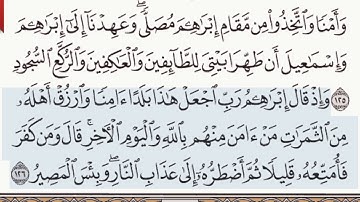 وَأَمْنًا وَٱتَّخِذُوا۟ مِن مَّقَامِ إِبْرَٰهِـۧمَ مُصَلًّى ۖ وَعَهِدْنَآ إِلَىٰٓ إِبْرَٰهِـۧمَ
وَإِسْمَـٰعِيلَ أَن طَهِّرَا بَيْتِىَ لِلطَّآئِفِينَ وَٱلْعَـٰكِفِينَ وَٱلرُّكَّعِ ٱلسُّجُودِ
١٢٥ وَإِذْ قَالَ إِبْرَٰهِـۧمُ رَبِّ ٱجْعَلْ هَـٰذَا بَلَدًا ءَامِنًا وَٱرْزُقْ أَهْلَهُۥ
مِنَ ٱلثَّمَرَٰتِ مَنْ ءَامَنَ مِنْهُم بِٱللَّهِ وَٱلْيَوْمِ ٱلْـَٔاخِرِ ۖ قَالَ وَمَن كَفَرَ
فَأُمَتِّعُهُۥ قَلِيلًا ثُمَّ أَضْطَرُّهُۥٓ إِلَىٰ عَذَابِ ٱلنَّارِ ۖ وَبِئْسَ ٱلْمَصِيرُ ١٢٦